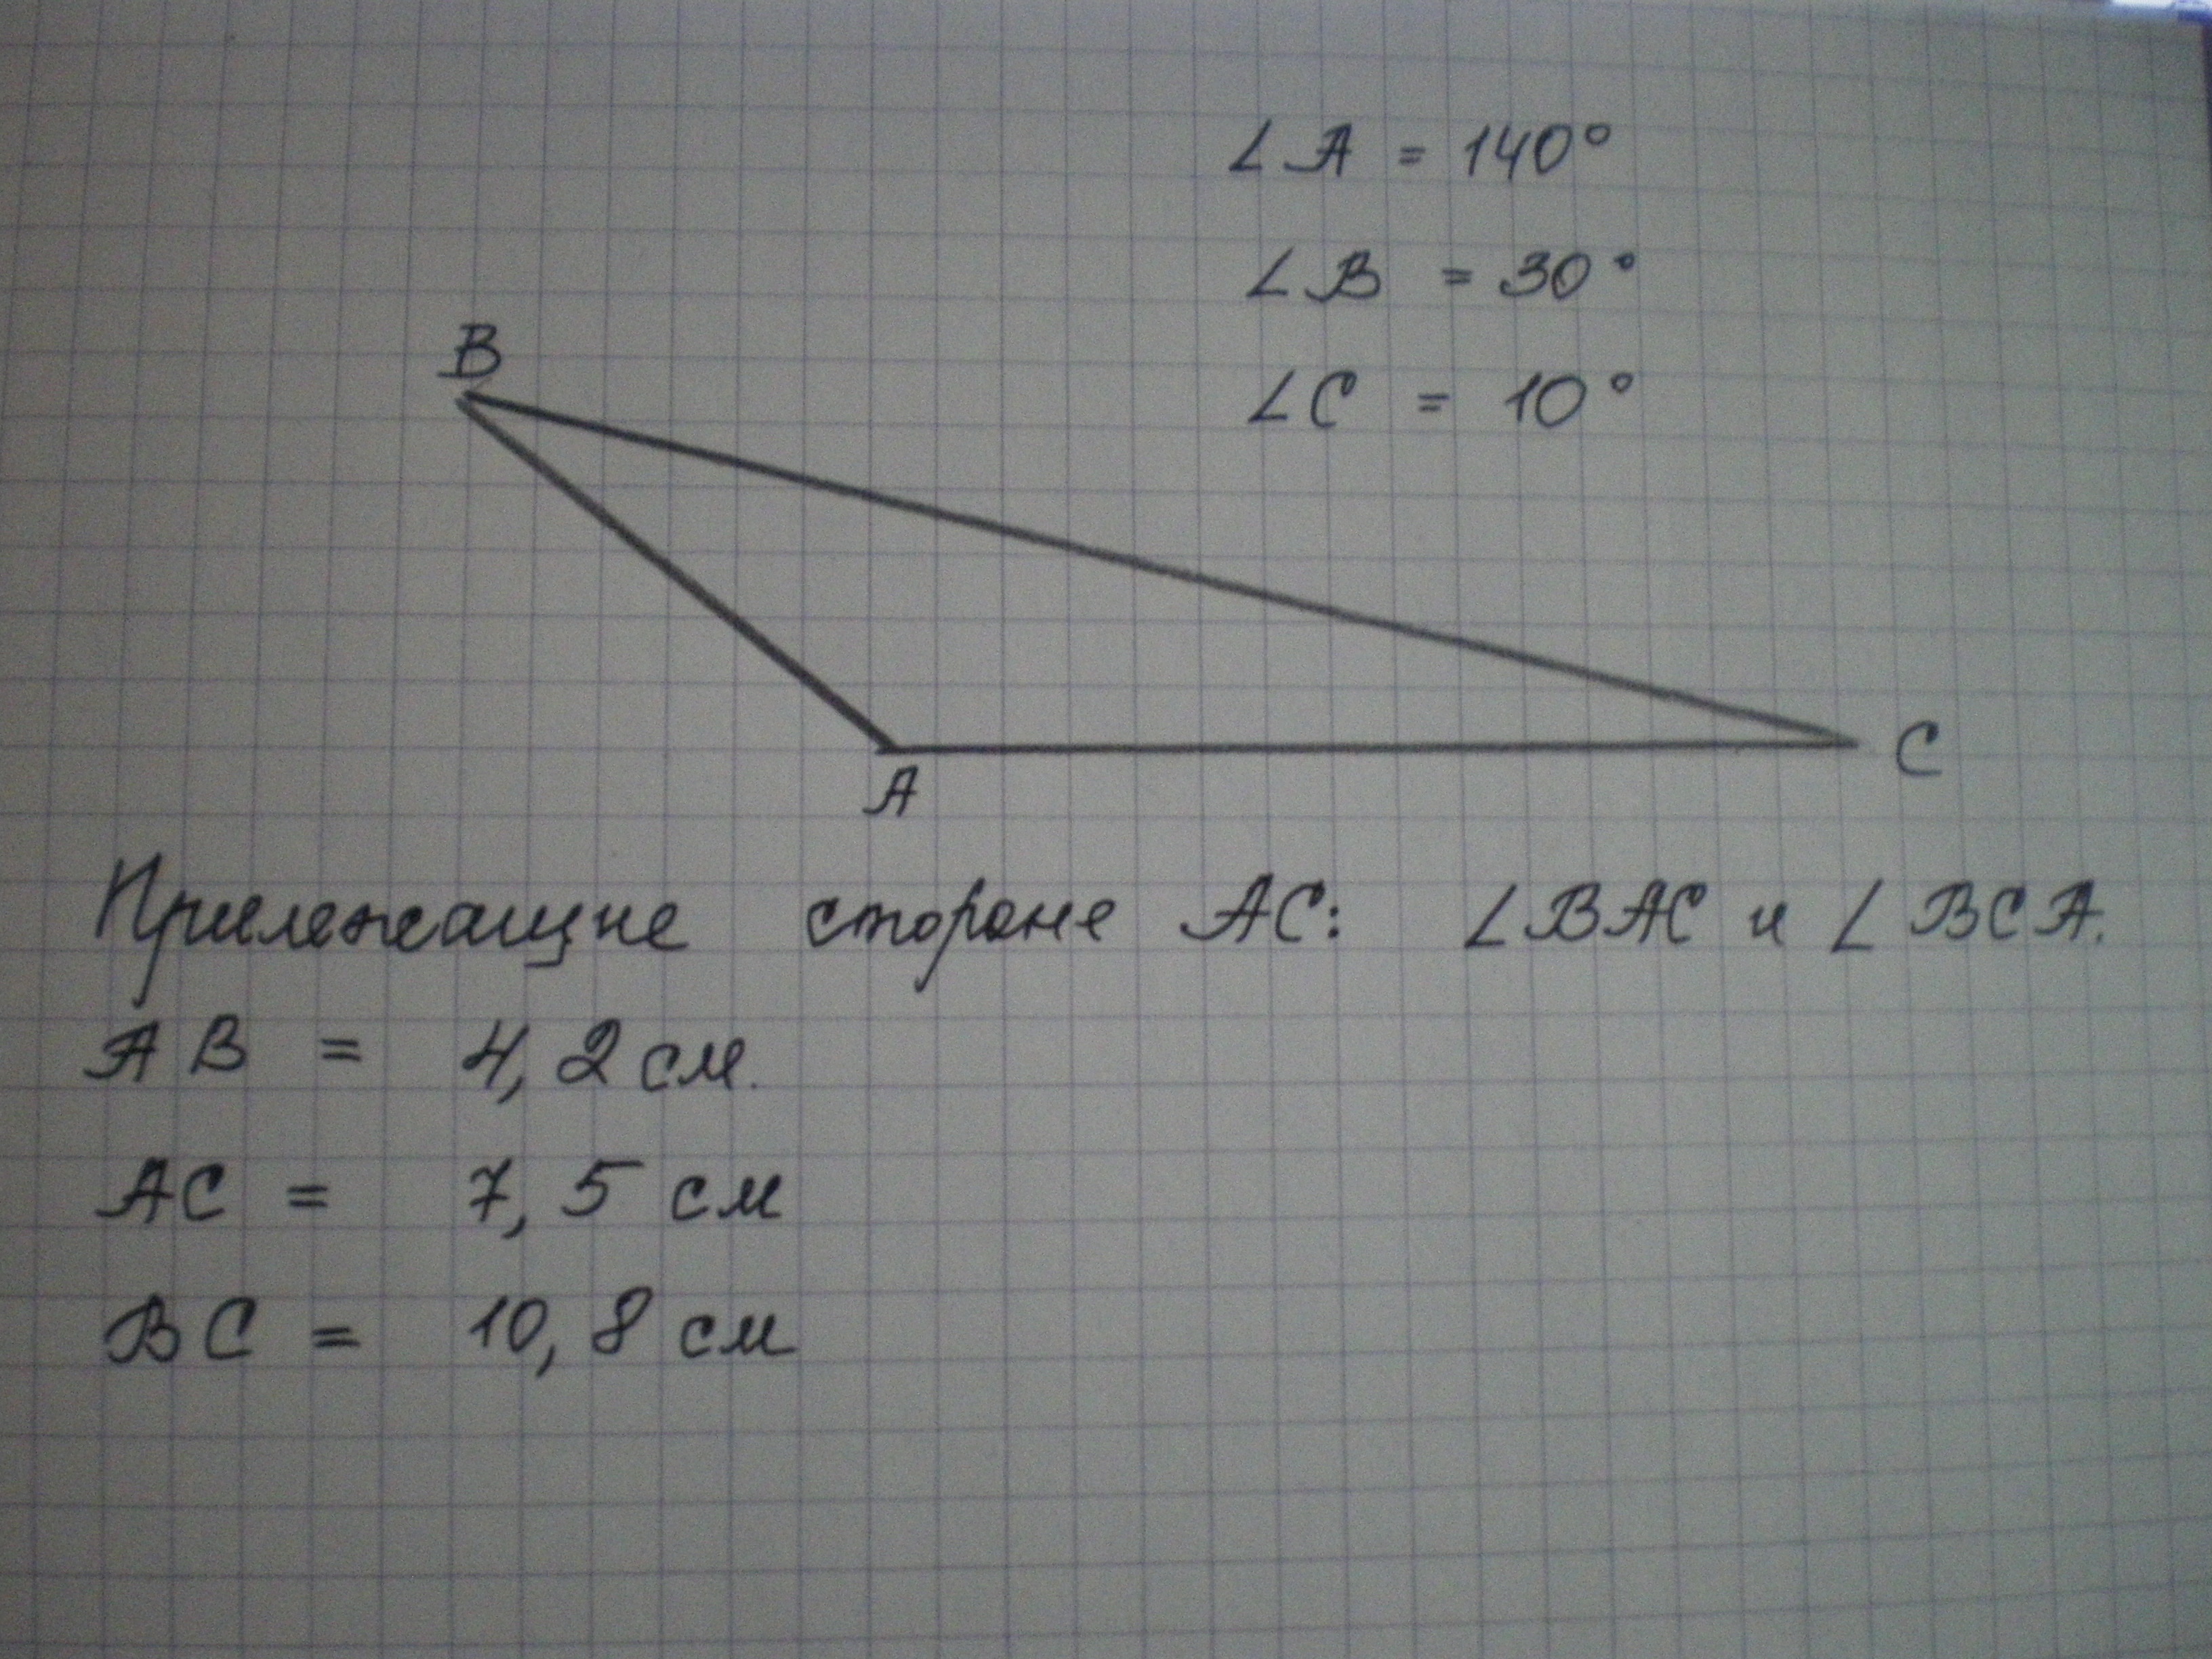 ∠A = 140°
∠B = 30°
∠C = 10°
B
A
C
Прилежащие стороне AC: ∠BAC и ∠BCA.
AB = 4,2 см.
AC = 7,5 см
BC = 10,8 см